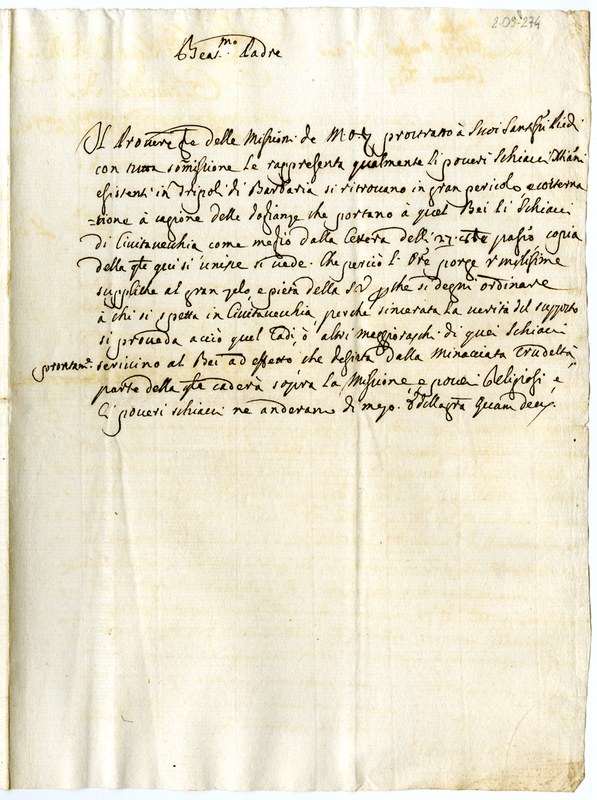 2-09-274
Beat.mo Padre
Il Provere.re delle Missioni de M.O. prostrato à Suoi Sant.mi Piedi
con tutta somissione le rappresenta qualmente li poveri Schiavi Xtiani
esistenti in Tripoli di Barbaria si ritrovano in gran pericolo e costerna
=tione à cagione delle doglianze che portano à quel Bei li Schiavi
di Civitavecchia come meglio dalla lettera delli 27 copia
della q.le qui s'unisce si vede. Che perciò l'Ore porge umilissime
suppliche al gran zelo e pietà della S.V. che si degni ordinare
à chi si spetta in Civitavecchia perche sincerata la verità del supposto
si proveda acciò quel Cadi ò altri di quei Schiavi
prontam.e scrivino al Bei ad effetto che desista dalla minacciata crudeltà
parte della q.le caderà sopra la Missione e poveri Religiosi, e
li poveri schiavi ne anderano di mezo. Quam Deus.